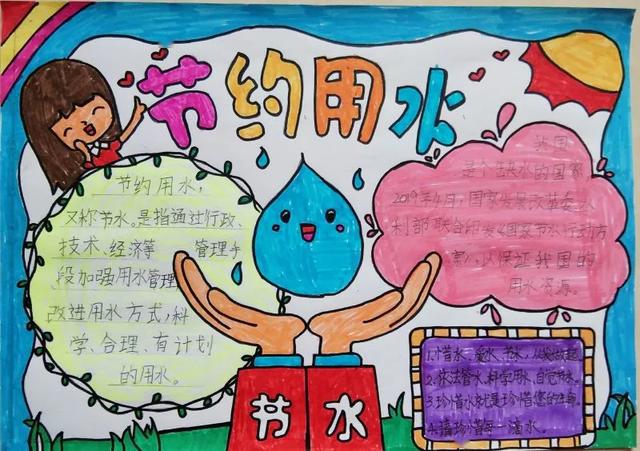 节约用水
节约用水，
又称节水。是指通过行政、
技术、经济等 管理手
段加强用水管理
改进用水方式，科
学、合理、有计划
的用水。
我国
是个缺水的国家
2019年4月，国家发展改革委、水
利部联合印发《国家节水行动方
案》，以保证我国的
用水资源。
1.惜水、爱水、节水，从我做起。
2.依法管水，科学用水，自觉节水。
3.珍惜水就是珍惜您的生命。
4.请珍惜每一滴水。
节 水